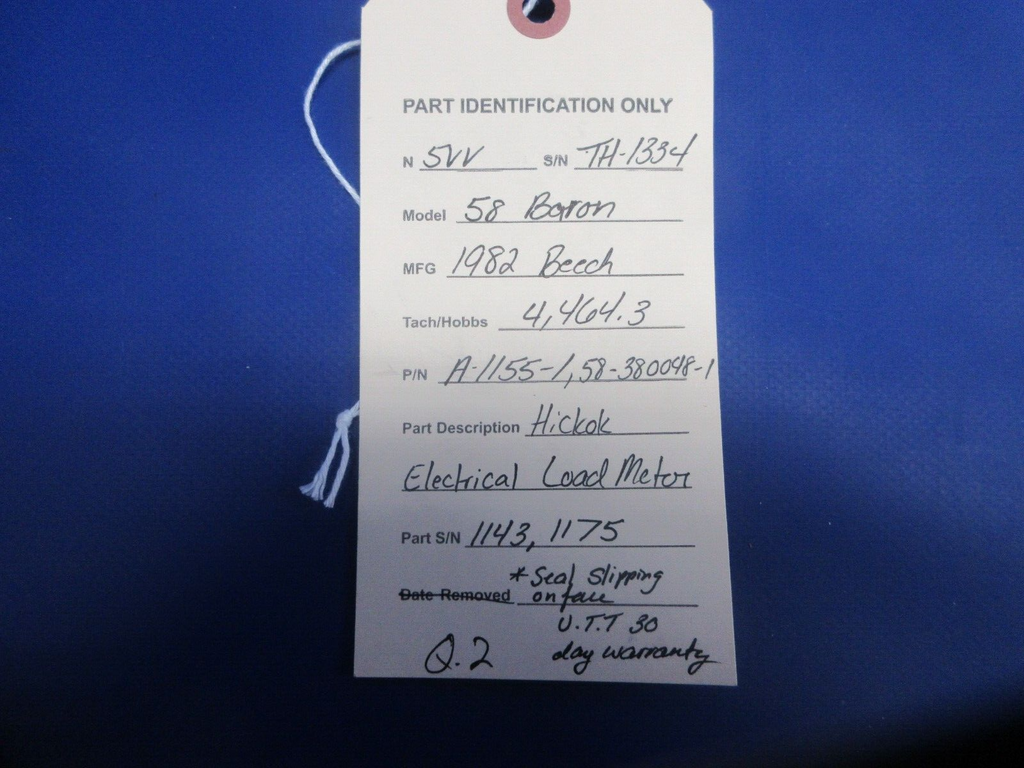 PART IDENTIFICATION ONLY
N 5VV S/N TH-1334
Model 58 Baron
MFG 1982 Beech
Tach/Hobbs 4,464.3
P/N A-1155-1, 58-380048-1
Part Description Hickok
Electrical Load Meter
Part S/N 1143, 1175
* Seal Slipping
Date Removed on face
U.T.T 30
Q.2 day warranty